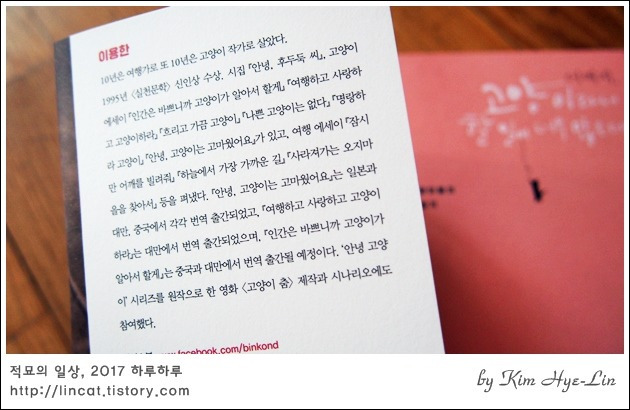 이용한
10년은 여행가로 또 10년은 고양이 작가로 살았다.
1995년 〈실천문학〉 신인상 수상. 시집 『안녕, 후두둑 씨』, 고양이
에세이 『인간은 바쁘니까 고양이가 알아서 할게』, 『여행하고 사랑하
고 고양이하라』, 『흐리고 가끔 고양이』, 『나쁜 고양이는 없다』, 『명랑하
라 고양이』, 『안녕, 고양이는 고마웠어요』가 있고, 여행 에세이 『잠시
만 어깨를 빌려줘』, 『하늘에서 가장 가까운 길』, 『사라져가는 오지마
을을 찾아서』 등을 펴냈다. 『안녕, 고양이는 고마웠어요』는 일본과
대만, 중국에서 각각 번역 출간되었고, 『여행하고 사랑하고 고양이
하라』는 대만에서 번역 출간되었으며, 『인간은 바쁘니까 고양이가
알아서 할게』는 중국과 대만에서 번역 출간될 예정이다. '안녕 고양
이' 시리즈를 원작으로 한 영화 〈고양이 춤〉 제작과 시나리오에도
참여했다.
www.facebook.com/binkond
고양이
적묘의 일상, 2017 하루하루
http://lincat.tistory.com
by Kim Hye-Lin